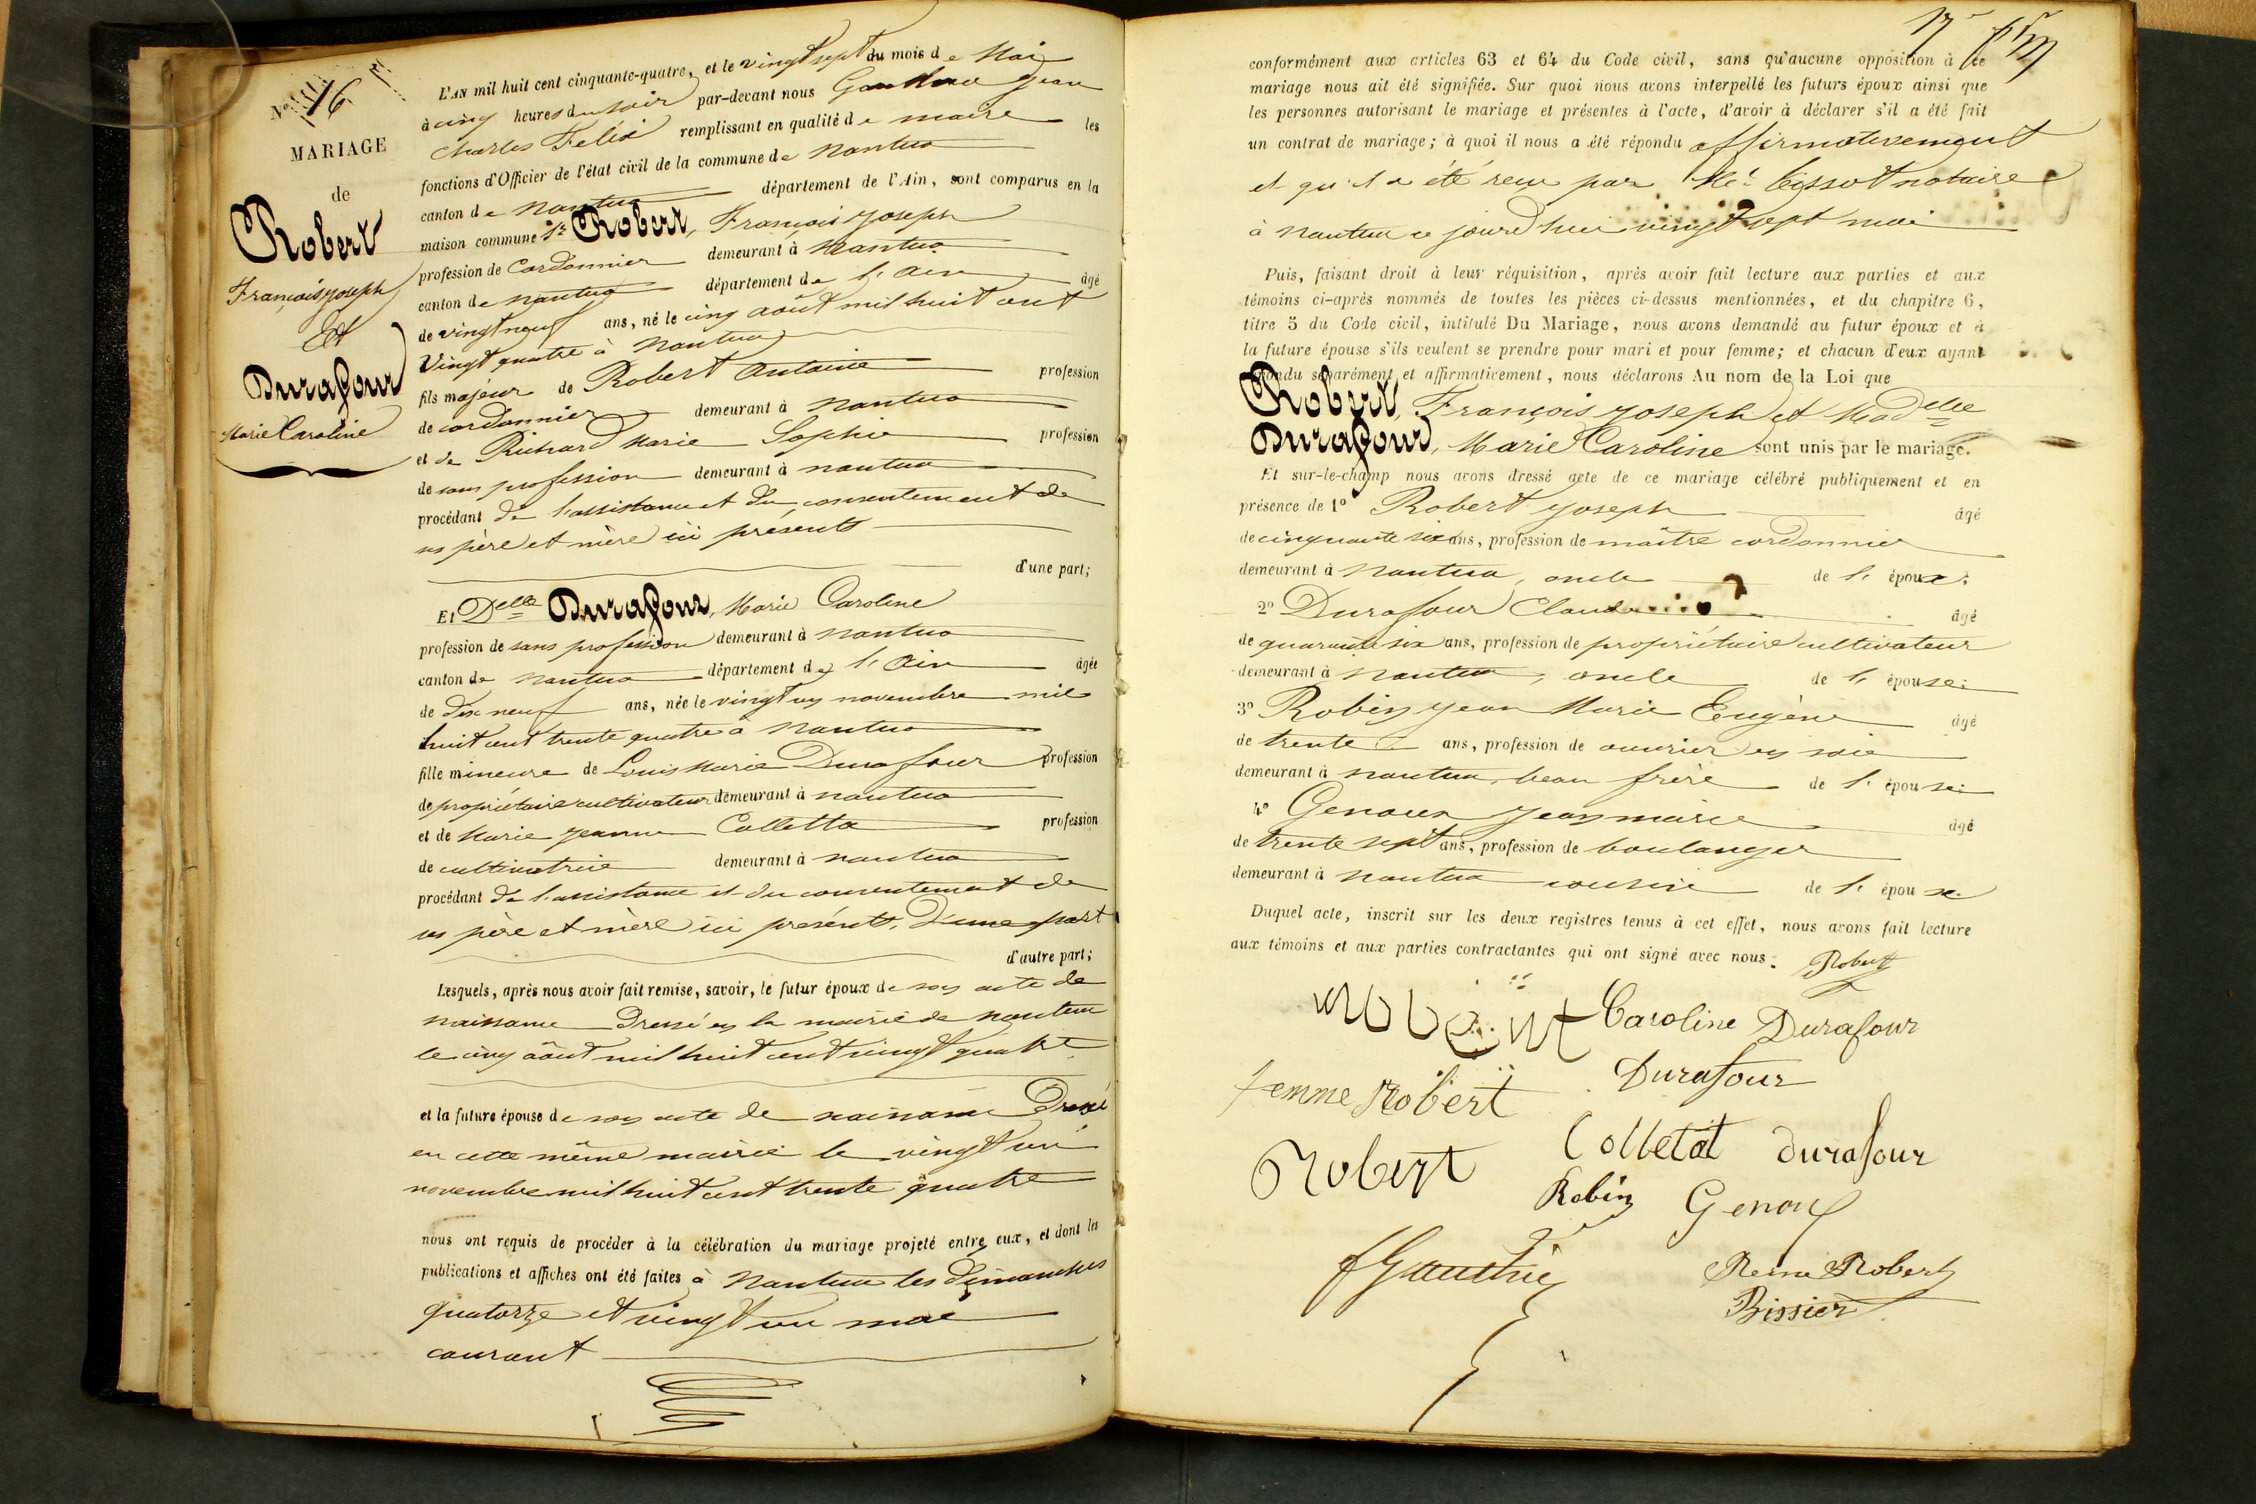 No 16
MARIAGE
de
Robert
François Joseph
Et
Durafour
Marie Caroline
L'AN mil huit cent cinquante-quatre, et le vingt sept du mois de Mai
à cinq heures du soir par-devant nous Jean
Charles Felix remplissant en qualité de maire les
fonctions d'Officier de l'état civil de la commune de Nantua
canton de Nantua département de l'Ain, sont comparus en la
maison commune Sr Robert, François Joseph
profession de Cordonnier demeurant à Nantua
canton de Nantua département de l'Ain âgé
de vingt neuf ans, né le cinq août mil huit cent
Vingt quatre à Nantua
fils majeur de Robert Antoine profession
de cordonnier demeurant à Nantua
et de Richard Marie Sophie profession
de sans profession demeurant à Nantua
procédant de l'assistance et du consentement de
ses père et mère ici présents
d'une part;
Et Delle Durafour, Marie Caroline
profession de sans profession demeurant à Nantua
canton de Nantua département de l'Ain âgée
de dix neuf ans, née le vingt un novembre mil
huit cent trente quatre à Nantua
fille mineure de Louis Marie Durafour profession
de propriétaire cultivateur demeurant à Nantua
et de Marie Jeanne Colletta profession
de cultivatrice demeurant à Nantua
procédant de l'assistance et du consentement de
ses père et mère ici présents, D'une part
d'autre part;
Lesquels, après nous avoir fait remise, savoir, le futur époux de son acte de
naissance Dressé en la mairie de Nantua
le cinq août mil huit cent vingt quatre
et la future épouse de son acte de naissance Dressé
en cette même mairie le vingt un
novembre mil huit cent trente quatre
nous ont requis de procéder à la célébration du mariage projeté entre eux, et dont les
publications et affiches ont été faites à Nantua les dimanches
quatorze et vingt un mai
courant
conformément aux articles 63 et 64 du Code civil, sans qu'aucune opposition à ce
mariage nous ait été signifiée. Sur quoi nous avons interpellé les futurs époux ainsi que
les personnes autorisant le mariage et présentes à l'acte, d'avoir à déclarer s'il a été fait
un contrat de mariage; à quoi il nous a été répondu affirmativement
et qu'il a été reçu par Me notaire
à Nantua ce jourd'hui vingt sept mai
Puis, faisant droit à leur réquisition, après avoir fait lecture aux parties et aux
témoins ci-après nommés de toutes les pièces ci-dessus mentionnées, et du chapitre 6,
titre 5 du Code civil, intitulé Du Mariage, nous avons demandé au futur époux et à
la future épouse s'ils veulent se prendre pour mari et pour femme; et chacun d'eux ayant
répondu séparément et affirmativement, nous déclarons Au nom de la Loi que
Robert, François Joseph et Madelle
Durafour, Marie Caroline sont unis par le mariage.
Et sur-le-champ nous avons dressé acte de ce mariage célébré publiquement et en
présence de 1º Robert Joseph âgé
de cinquante six ans, profession de maître cordonnier
demeurant à Nantua, oncle de l'époux;
2º Durafour Claude âgé
de quarante six ans, profession de propriétaire cultivateur
demeurant à Nantua, oncle de l'épouse;
3º Robin Jean Marie Eugène âgé
de trente ans, profession de ouvrier en soie
demeurant à Nantua, beau frère de l'épouse;
4º Genoux Jean marie âgé
de trente sept ans, profession de boulanger
demeurant à Nantua cousin de l'épouse
Duquel acte, inscrit sur les deux registres tenus à cet effet, nous avons fait lecture
aux témoins et aux parties contractantes qui ont signé avec nous. Robert
Robert Caroline Durafour
femme Robert Durafour
Robert Colletat durafour
Robin Genoux
Reine Robert
Bissier